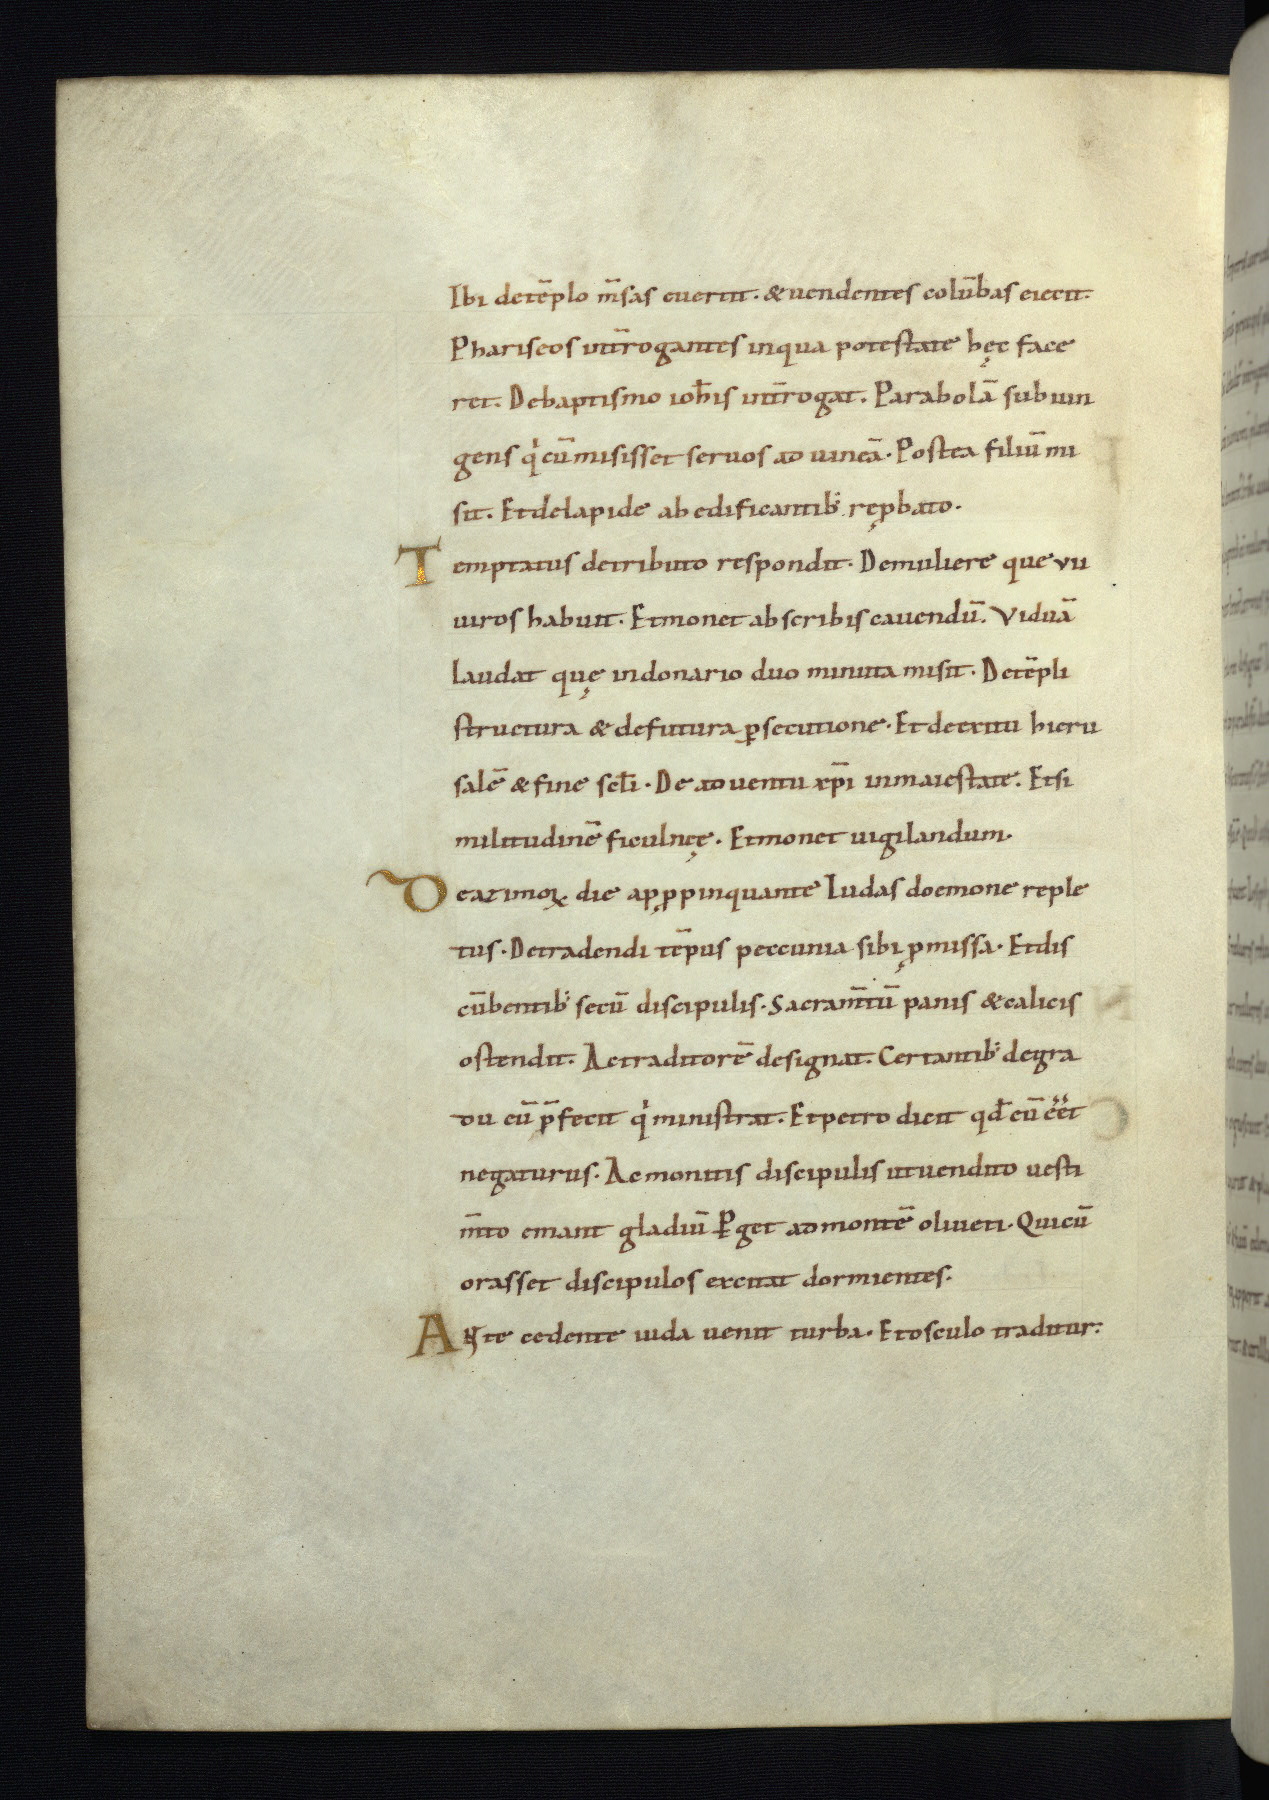 Ibi detēplo m̄sas euertit. & uendentes colūbas eiecit.
Phariseos int̄rogantes inqua potestate hęc face
ret. Debaptismo ioh̄is int̄rogat. Parabolā subiun
gens qͥ cū misisset seruos ad uineā. Postea filiū mi
sit. Etdelapide ab edificantib; rep̱bato.
Temptatus detributo respondit. Demuliere que vii
uiros habuit. Etmonet abscribis cauendū. Viduā
laudat quę indonario duo minuta misit. Detēpli
structura & defutura ꝑsecutione. Et deexitu hieru
salē & fine sc̄li. De aduentu xp̄i inmaiestate. Etsi
militudinē ficulneę. Etmonet uigilandum.
De azimoꝝ die apꝓpinquante Iudas doemone reple
tus. Detradendi tēpus peccunia sibi ꝓmissa. Etdis
cūbentib; secū discipulis. Sacram̄tū panis & calicis
ostendit. Actraditorē designat. Certantib; degra
du eū p̄fecit qͥ ministrat. Etpetro dicit qd̄ eū ēēt
negaturus. Acmonitis discipulis utuendito uesti
m̄to emant gladiū Ꝑget admontē oliueti. Quicū
orasset discipulos excitat dormientes.
Antecedente iuda uenit turba. Etosculo traditur.